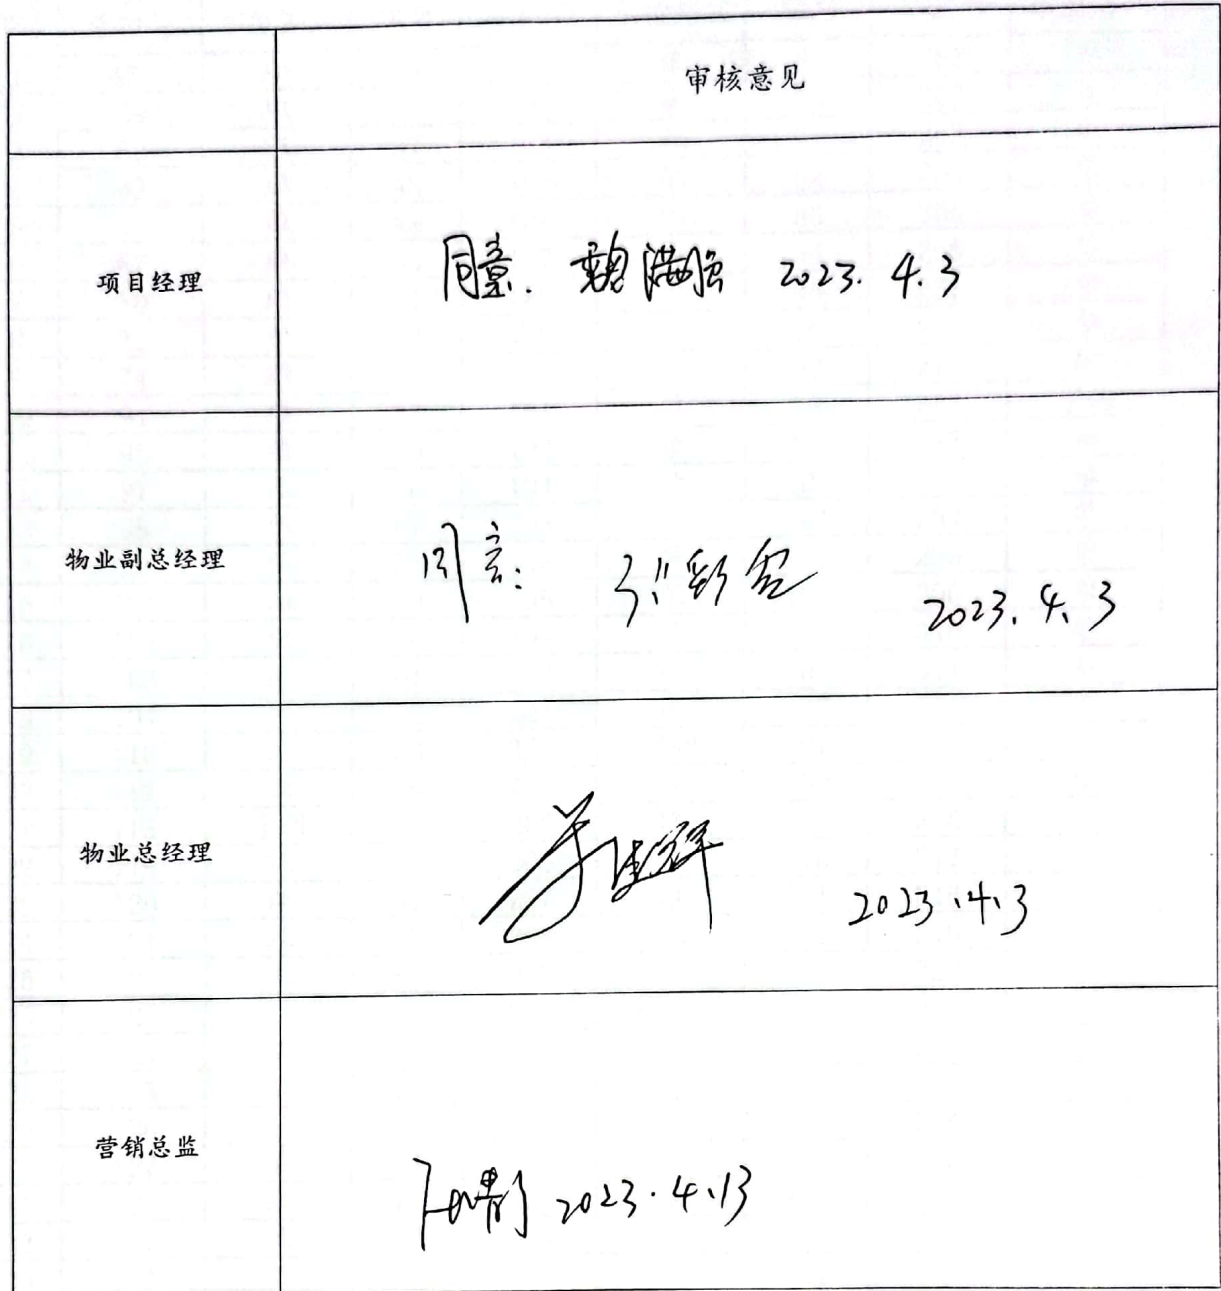 审核意见
项目经理
同意. 魏满强 2023. 4. 3
物业副总经理
同意. 2023. 4. 3
物业总经理
2023.4.3
营销总监
2023.4.13